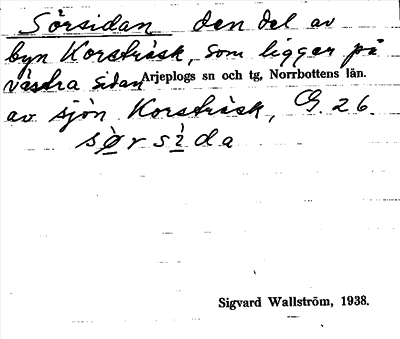 Sörsidan den del av
byn Korsträsk, som ligger på
västra sidan Arjeplogs sn och tg, Norrbottens län.
av sjön Korsträsk, G. 26.
sø̀rsìda
Sigvard Wallström, 1938.